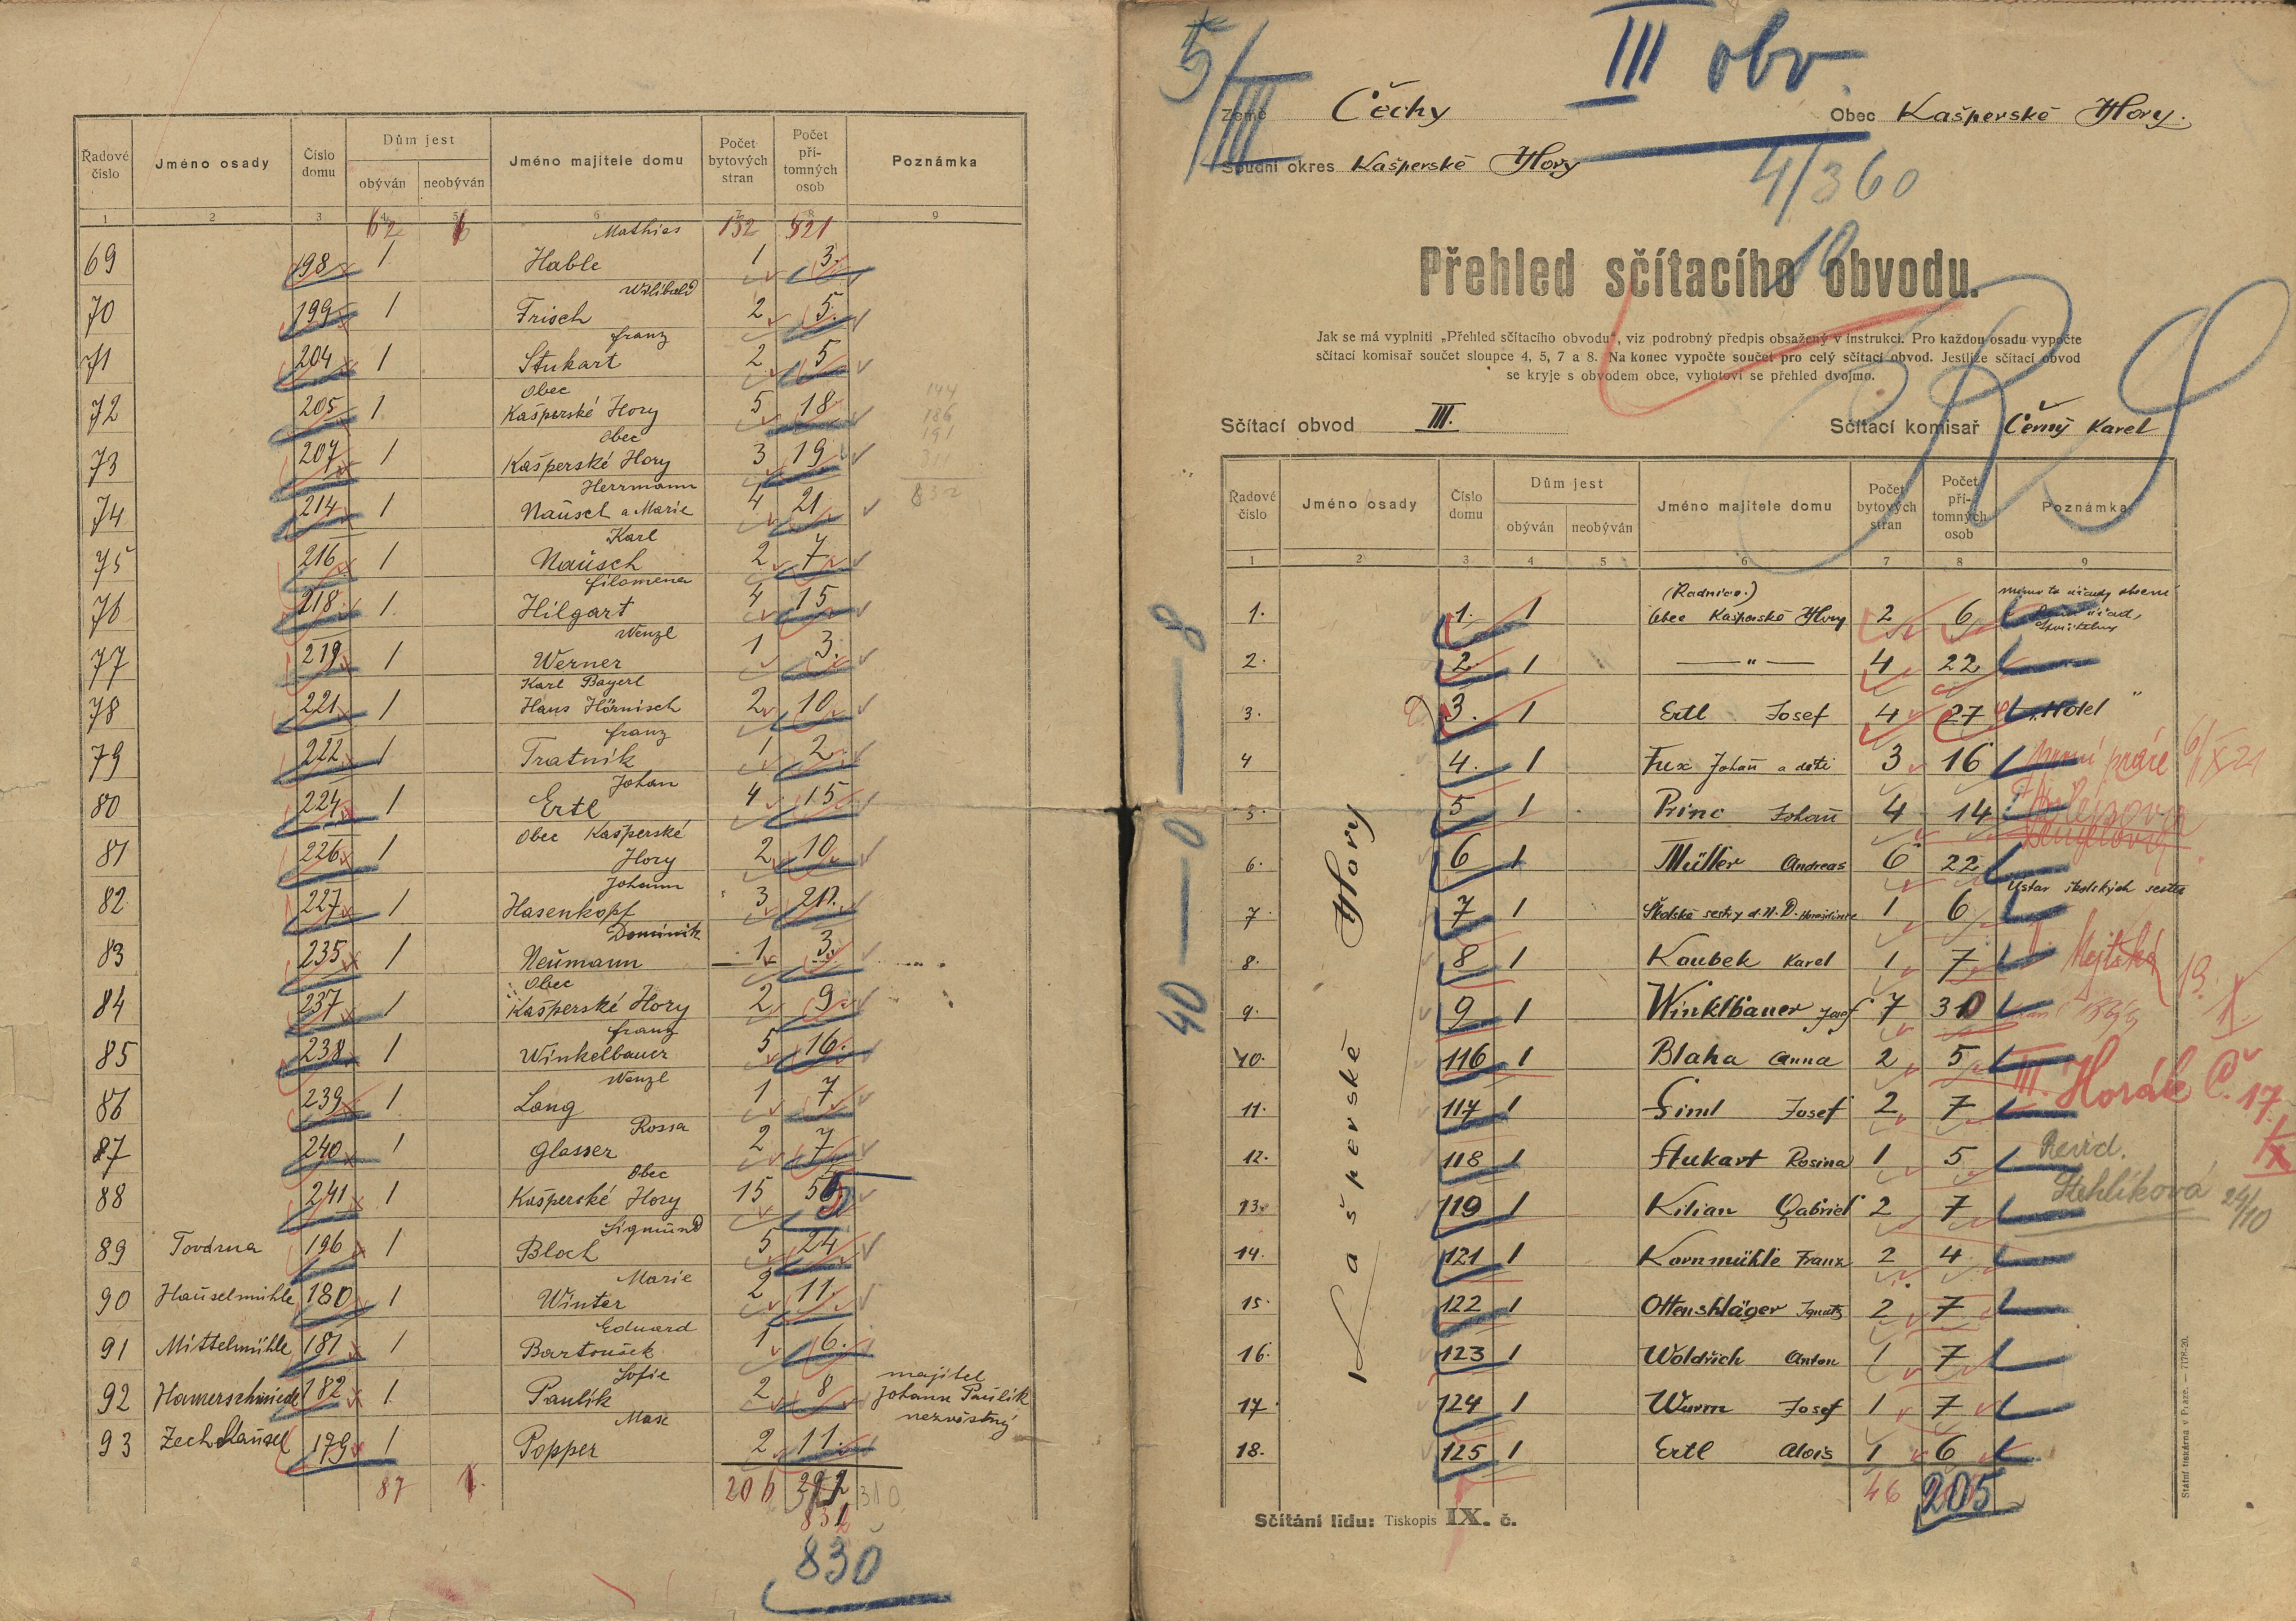 Řadové číslo | Jméno osady | Číslo domu | Dům jest obýván | neobýván | Jméno majitele domu | Počet bytových stran | Počet přítomných osob | Poznámka
1 2 3 4 5 6 7 8 9
62 132 521
69 198 1 Mathias Hable 1 3.
70 199 1 Willibald Frisch 2 5.
71 204 1 Franz Stukart 2 5
72 205 1 Obec Kašperské Hory 5 18
73 207 1 Obec Kašperské Hory 3 19
74 214 1 Herrmann Naüsch a Marie 4 21
75 216 1 Karl Naüsch 2 7
76 218 1. Filomena Hilgart 4 15
77 219 1 Wenzl Werner 1 3.
78 221 1 Karl Bayerl Hans Hörnisch 2 10
79 222 1 Franz Tratnik 1 2
80 224 1 Johan Ertl 4 15
81 226 1 Obec Kašperské Hory 2 10
82 227 1 Johann Hasenkopf 3 21
83 235 1 Dominik Neümann 1 3
84 237 1 Obec Kašperské Hory 2 9
85 238 1 Franz Winkelbauer 5 16.
86 239 1 Wenzl Lang 1 7
87 240 1 Rossa Glasser 2 7
88 241 1 Obec Kašperské Hory 15 55
89 Tovdrna 196 1 Sigmünd Bloch 5 24
90 Haüselmühle 180 1 Marie Winter 2 11.
91 Mittelmühle 181 1 Eduard Bartoušek 1 6.
92 Hamerschmiede 182 1 Sofie Paulik 2 8 majitel Johann Paülik nezvěstný
93 Zech Haüsel 179 1 Max Popper 2 11.
87 1. 206 310
830
5/III
III obv.
Země Čechy
Obec Kašperské Hory.
Soudní okres Kašperské Hory
4/360
10
Přehled sčítacího obvodu.
Jak se má vyplniti „Přehled sčítacího obvodu“, viz podrobný předpis obsažený v instrukci. Pro každou osadu vypočte
sčítací komisař součet sloupce 4, 5, 7 a 8. Na konec vypočte součet pro celý sčítací obvod. Jestliže sčítací obvod
se kryje s obvodem obce, vyhotoví se přehled dvojmo.
Sčítací obvod III.
Sčítací komisař Černý Karel
Řadové číslo | Jméno osady | Číslo domu | Dům jest obýván | neobýván | Jméno majitele domu | Počet bytových stran | Počet přítomných osob | Poznámka
1 2 3 4 5 6 7 8 9
Kašperské Hory
40 — 0 — 8
1. 1. 1 (Radnice.) Obec Kašperské Hory 2 6
2. 2. 1 — " — 4 22
3. 3. 1 Ertl Josef 4 27 „Hotel"
4 4. 1 Fux Johañ a děti 3 16 první práce 6/X 21
5. 5 1 Princ Johañ 4 14
6. 6 1 Müller Andreas 6 22
7. 7 1 Školské sestry d. N. D. 1 6 Ústav školských sester
8. 8 1 Koubek Karel 1 7
9. 9 1 Winklbauer Josef 7 30
10. 116 1 Blaha Anna 2 5 III. Horák Č. 17.
11. 117 1 Siml Josef 2 7
12. 118 1 Stukart Rosina 1 5 Revid.
13. 119 1 Kilian Gabriel 2 7 Stehlíková 24/10
14. 121 1 Kornmühle Franz 2 4
15. 122 1 Ottenshläger Ignatz 2 7
16. 123 1 Woldřich Anton 1 7
17. 124 1 Wurm Josef 1 7
18. 125 1 Ertl Alois 1 6
46 205
Sčítání lidu: Tiskopis IX. č.
Státní tiskárna v Praze. — 7178-20.